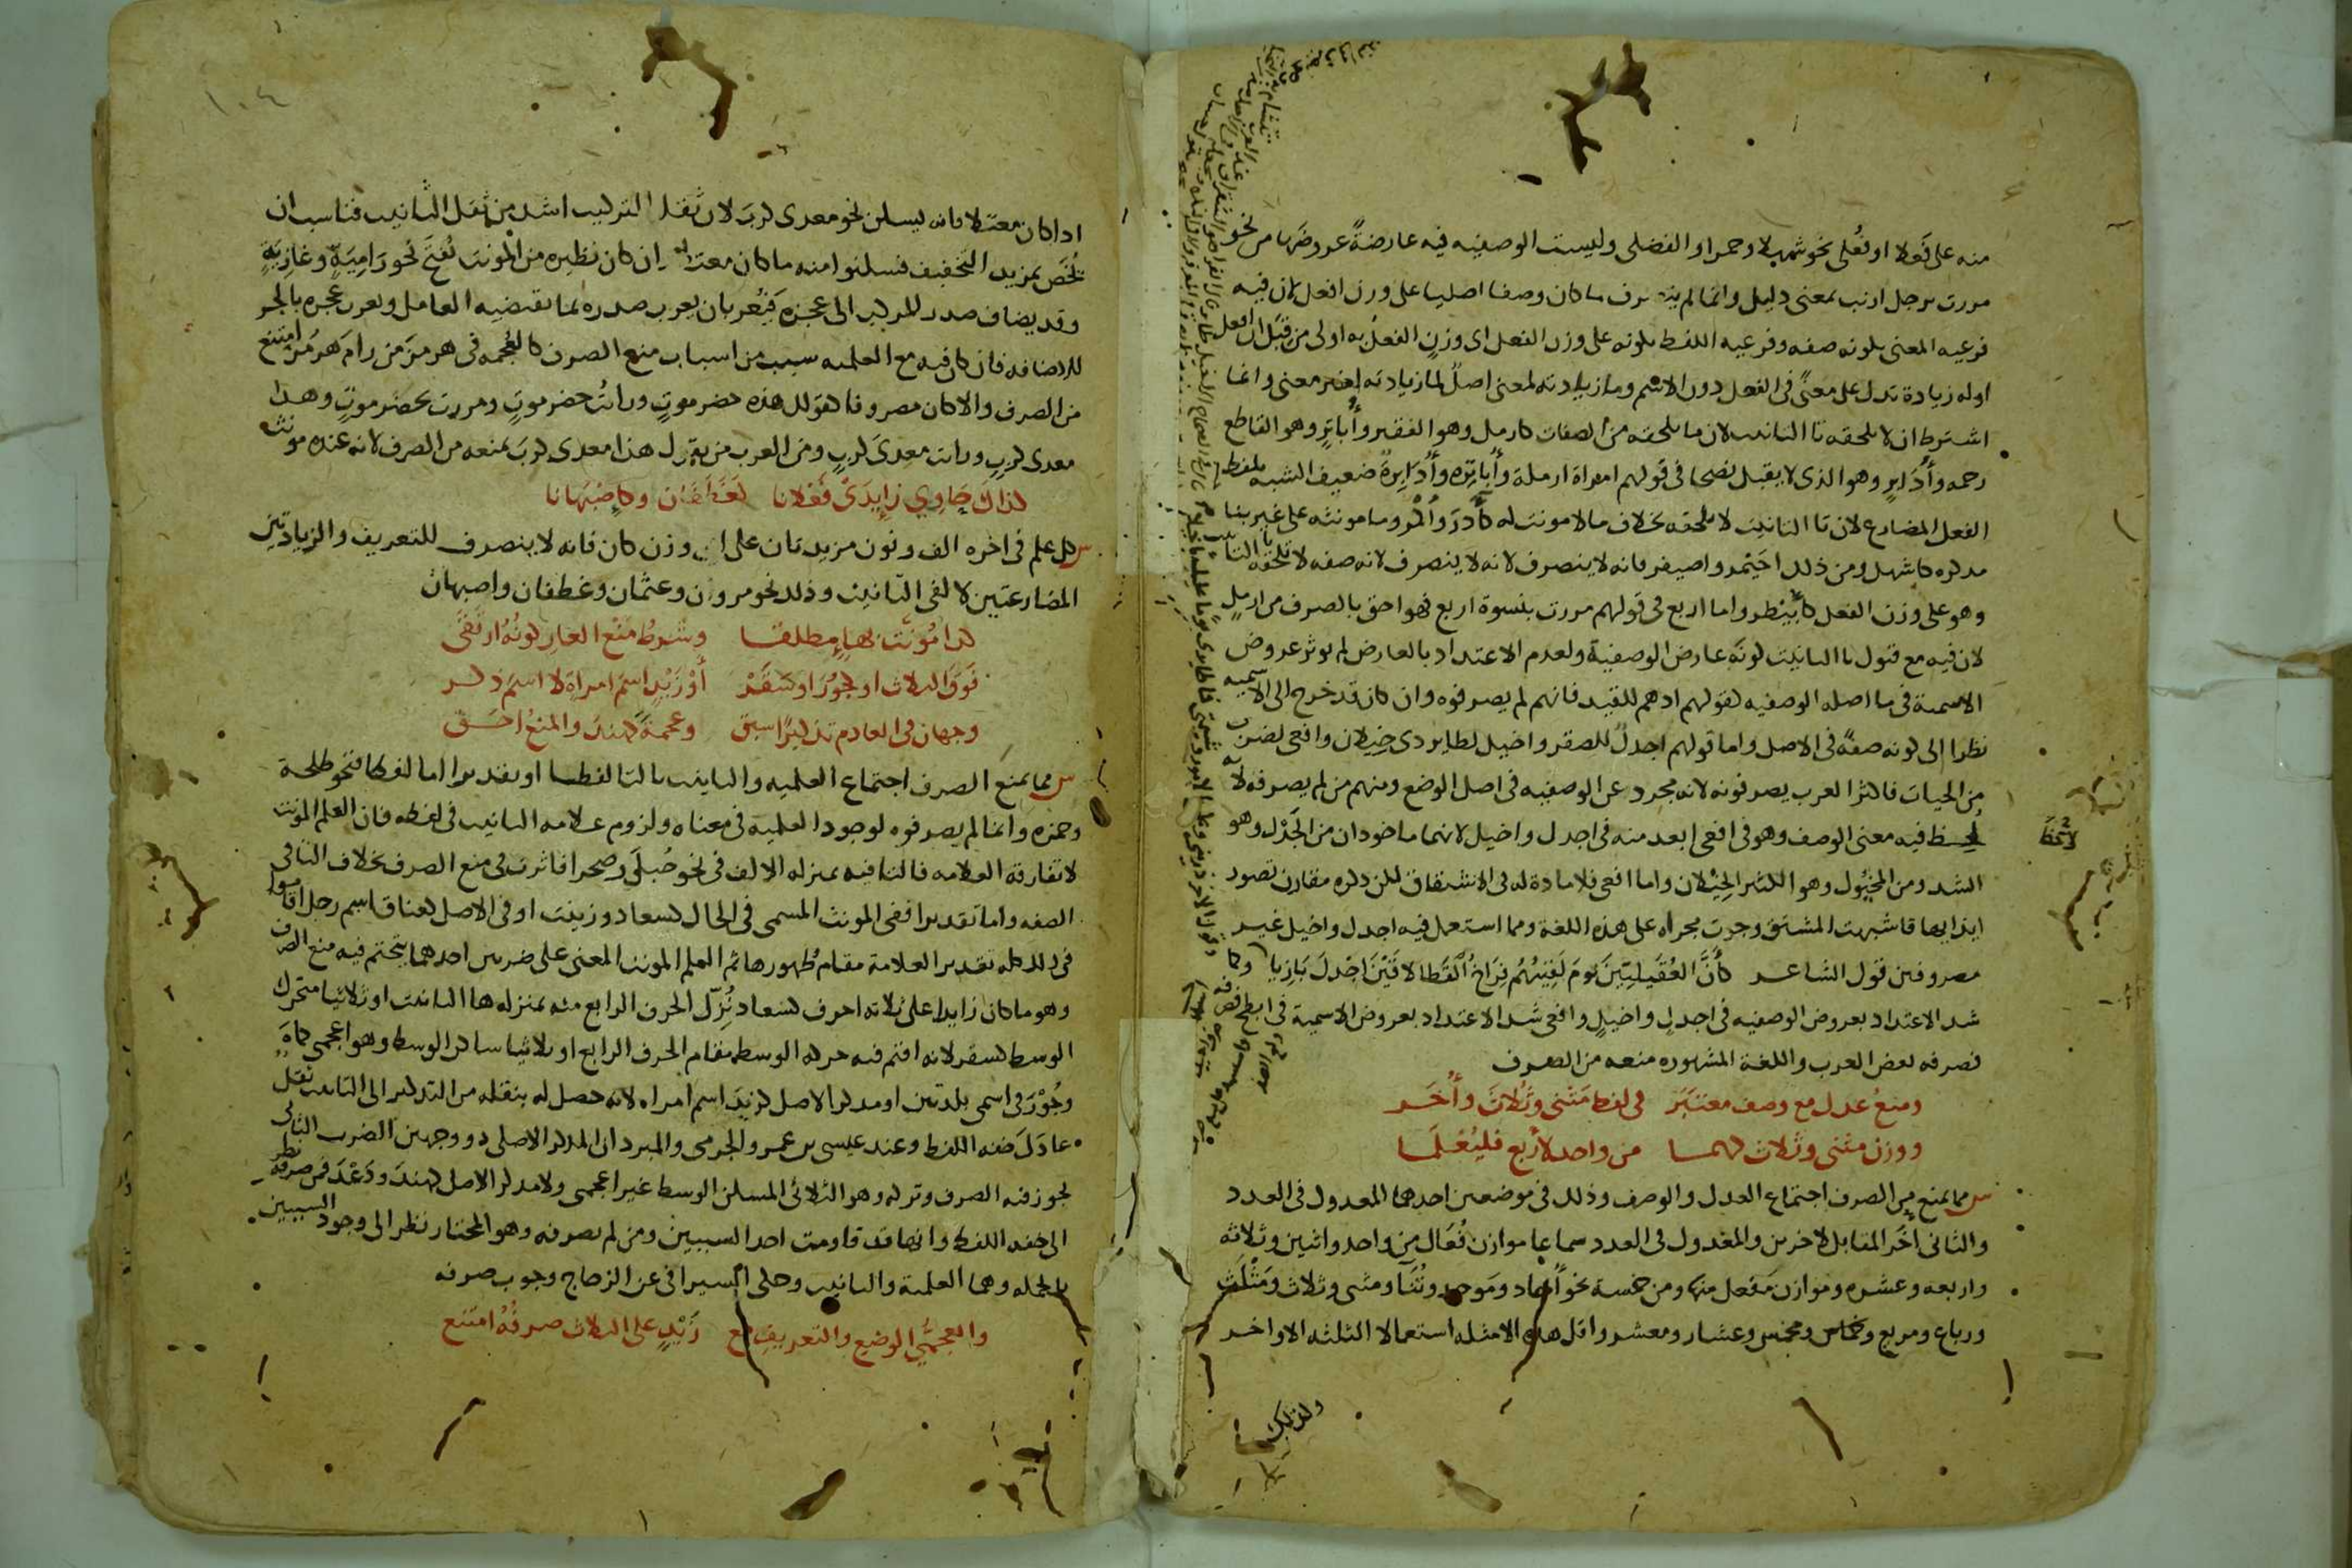 منه على فَعلا او فُعلى نحو شهلا وحمرا والفضلى وليست الوصفيه فيه عارضةً عروضها من نحو
مررت برجل ارنب بمعنى ذليل وانما لم ينصرف ما كان وصفا اصليا على وزن افعل لان فيه
فرعيه المعنى بكونه صفه وفرعيه اللفظ بكونه على وزن الفعل اى وزنٍ الفعلُ به اولى من قبل ان افعل
اوله زيادة تدل على معنًى فى الفعل دون الاسم وما زيادته لمعنى اصلٌ لما زيادته لغير معنى وانما
اشترط ان لا تلحقه تا التانيث لان ما تلحقه من الصفات كارمل وهو الفقير وأُباتِرٍ وهو القاطع
رحمه وأُدابرٍ وهو الذى لا يقبل نصحا فى قولهم امراة ارملة وأُباتِرة وأُدَابِرة ضعيف الشبه بلفظ
الفعل المضارع لان تا التانيث لا تلحقه بخلاف ما لا مونث له كآدَرَ وأكمر وما مونثه على غير بنا
مذكره كاشهل ومن ذلك احَيْمر واصيفر فانه لا ينصرف لانه صفه لا تلحقه التا
وهو على وزن الفعل كأُبَيْطر واما اربع فى قولهم مررت بنسوة اربع فهو احق بالصرف من ارملٍ
لان فيه مع قبول تا التانيث كونَه عارض الوصفية ولعدم الاعتداد بالعارض لم يوثر عروض
الاسمية فى ما اصله الوصفيه كقولهم ادهم للقيد فانهم لم يصرفوه وان كان قد خرج الى الاسميه
نظرا الى كونه صفةً فى الاصل واما قولهم اجدلٌ للصقر واخيل لطاير ذى خِيلان وافعى لضرب
من الحيات فاكثر العرب يصرفونه لانه مجرد عن الوصفيه فى اصل الوضع ومنهم من لم يصرفه لانه
لحظ فيه معنى الوصف وهو فى افعى ابعد منه فى اجدل واخيل لانهما ماخوذان من الجَدْل وهو
الشد ومن المخيُول وهو الكثير الخِيْلان واما افعى فلا مادة له فى الاشتقاق لكن ذكره مقارن تصور
ايذايها فاشبهت المشتق وجرت مجراه على هذه اللغة ومما استعمل فيه اجدل واخيل غير
مصروفين قول الشاعر كأنَّ العُقَيلِيّينَ يومَ لَقِيتُهُم فِرَاخُ القَطا لاقَيْنَ اجْدلَ بَازِيا وكما
شد الاعتداد بعروض الوصفيه فى اجدل واخيلٍ وافعى شد الاعتداد بعروض الاسمية فى ابطح
فصرفه بعض العرب واللغة المشهوره منعه من الصرف
ومنعُ عدل مع وصف معتبَر فى لفظ مَثنى وثُلاثَ وأُخَر
ووزن مثنى وثلاث كهما من واحد لاربع فليُعْلَما
س مما يمنع من الصرف اجتماع العدل والوصف وذلك فى موضعين احدهما المعدول فى العدد
والثانى أُخَر المقابل لاخرين والمعدول فى العدد سماعا موازن فُعَال من واحد واثنين وثلاثه
واربعه وعشره وموازن مَفعل منها ومن خمسة نحو أُحاد ومَوحد وثُنَا ومثنى وثلاث ومَثْلَث
ورباع ومربع ومخمس وعشار ومعشر واقل هذه الامثله استعمالا الثلثه الاواخر
ولذلك
١٠٤
اذا كان معتلا فانه يسكن نحو معدى كربَ لان ثقل التركيب اشد من ثقل التانيث فناسب ان
تُخَص بمزيد التخفيف فسكنوا منه ما كان معتلا ان كان نظيره من المونث يُفتَح نحو رَامِيَةٍ وغازِيَةٍ
وقد يضاف صدر المركب الى عجزه فيُعرَب بان يعرب صدره بما تقتضيه العامل ويعرب عجزه بالجر
للاضافه فان كان فيه مع العلميه سبب من اسباب منع الصرف كالعُجمه فى هرمز من رامَ هرمُز امتنع
من الصرف والا كان مصروفا كقولك هذه حضرموتٍ وراتُ حضرموتٍ ومررت بحضرموتٍ وهذا
معدى كربٍ ورات معدىَ كربٍ ومن العرب من يقول هذا معدى كربَ بمنعه من الصرف لانه عنده مونث
كذاك حَاوِي زايدَىْ فَعْلانا كغَطَفَان وكاصْبَهانا
س كل علم فى اخره الف ونون مزيدتان على اى وزن كان فانه لا ينصرف للتعريف والزيادتين
المضارعتين لالفى التانيث وذلك نحو مروان وعثمان وغطفان واصبهان
كذا مُونَّث بهاءٍ مطلقا وشرطُ مَنْع العارِ كونُهُ ارتَقَى
فَوقَ الثلاث او كجُوْرَ او سَقَرْ أوْ زَيْدٍ اسمَ امراةٍ لا اسمَ ذكر
وجهان فى العادم تذكيرًا سبق وعجمةً كهندَ والمنعُ احَق
س مما يمنع الصرف اجتماع العلميه والتانيث بالتا لفظا او تقديرا اما لفظا فنحو طلحة
وحمزه وانما لم يصرفوه لوجود العلميه فى معناه ولزوم علامه التانيث فى لفظه فان العلم المونث
لا تفارقه العلامه فالتا فيه بمنزله الالف فى نحو حُبلَى وصحرا فاثرت فى منع الصرف بخلاف التا فى
الصفه واما تقديرا ففى المونث المسمى فى الحال كسعاد وزينبَ او فى الاصل كعناق اسم رجل اقاموا
فى ذلك كله تقدير العلامة مقام ظهورها ثم العلم المونث المعنى على ضربين احدهما يتحتم فيه منع الصرف
وهو ما كان زايدا على ثلاثه احرف كسعاد نُزِّل الحرف الرابع منه بمنزله ها التانيث او ثلاثيا متحرك
الوسط كسقر لانه اقيم فيه حركه الوسط مقام الحرف الرابع او ثلاثيا ساكن الوسط وهو اعجمى كماهَ
وجُوْرَ فى اسمى بلدتين او مذكر الاصل كزيدَ اسم امراه لانه حصل له بنقله من التذكير الى التانيث ثقل
عادَلَ خفه اللفظ وعند عيسى بن عمر والجرمى والمبرد ان المذكر الاصل ذو وجهين الضرب الثانى
يجوز فيه الصرف وتركه وهو الثلاثى المسكن الوسط غير اعجمى ولا مذكر الاصل كهندَ ودَعْدَ فمن صرفه نظر
الى خفه اللفظ وانها قد قاومت احد السببين ومن لم يصرفه وهو المختار نظر الى وجود السببين
بالجمله وهما العلمية والتانيث وحكى السيرافى عن الزجاج وجوب صرفه
والعجمىُّ الوضعِ والتعريفِ مع زَيْدٍ على الثلاث صرفُهُ امتَنع